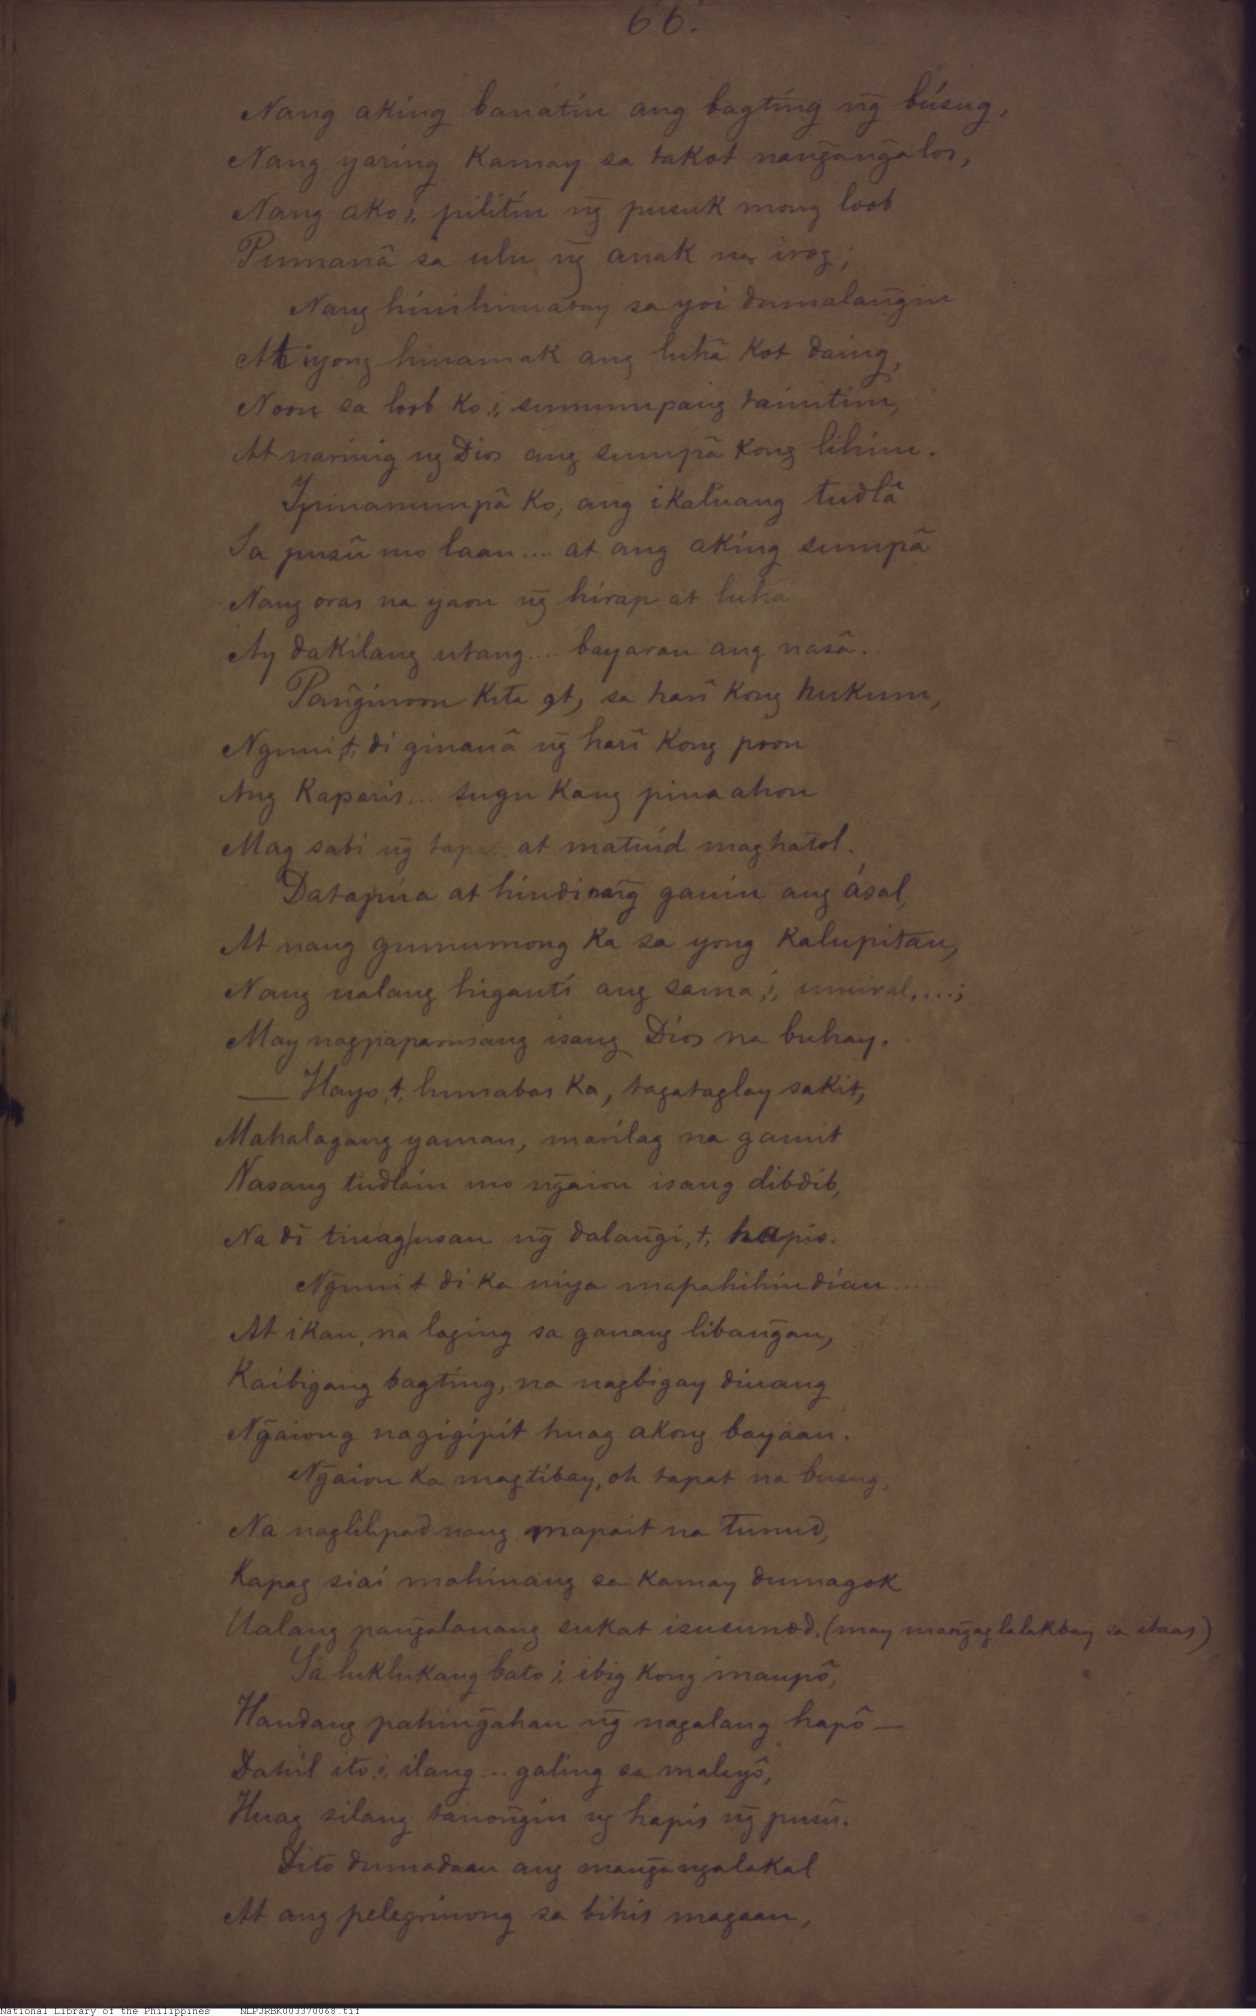 66.
Nang aking banátin ang bagting ng̃ búsug,
Nang yaring Kamay sa takot nang̃ang̃alos,
Nang ako,i, pilitin ng̃ pusuk mong loob
Pumanâ sa ulu ng̃ anak na irog;
Nang hinihimatay sa yoi dumalang̃in
At iyong hinamak ang luhâ Kot daing,
Noon sa loob Ko,i, sumumpang tainitim,
At narinig ng Dios ang sumpâ Kong lihim.
Ipinanumpâ Ko, ang ikaluang tudlâ
Sa pusû mo laan.... at ang aking sumpâ
Nang oras na yaon ng̃ hirap at luha
Ay dakilang utang.... bayaran ang nasâ.
Pang̃inoon Kita at, sa harî Kong hukum,
Nguni,t, di ginanâ ng̃ harî Kong poon
Ang Kaparis... sugu Kang pinaahon
Mag sabi ng̃ tapa.. at matuid maghatol.
Datapua at hindi nang̃ ganin ang ásal,
At nang gumumong Ka sa yong Kalupitan,
Nang ualang higanti ang sama,i, umiral,...;
May nagpaparusang isang Dios na buhay.
— Hayo,t, lumabas Ka, tagataglay sakit,
Mahalagang yaman, marilag na gamit
Nasang tudlain mo ng̃aion isang dibdib,
Na di tinagusan ng̃ dalang̃i,t, hapis.
Ng̃unit di Ka niya mapahihindian.....
At ikau, na laging sa ganang libang̃an,
Kaibigang bagting, na nagbigay dinang
Ng̃aiong nagigipit huag akong bayaan.
Ng̃aion Ka magtibay, oh tapat na busug,
Na naglilipad nang mapait na tunud,
Kapag siai mahinang sa Kamay dumagok
Ualang pang̃alauang sukat isusunod. (may mang̃aglalakbay sa itaas)
Sa luklukang bato,i, ibig Kong maupô,
Handang pahing̃ahan ng̃ nagalang hapô —
Dahil ito,i, ilang... galing sa malayô,
Huag silang tanong̃in ng hapis ng̃ pusû.
Dito dumadaan ang mang̃angalakal
At ang pelegrinong sa bihis magaan,
National Library of the Philippines NLPJRBK003370068.tif